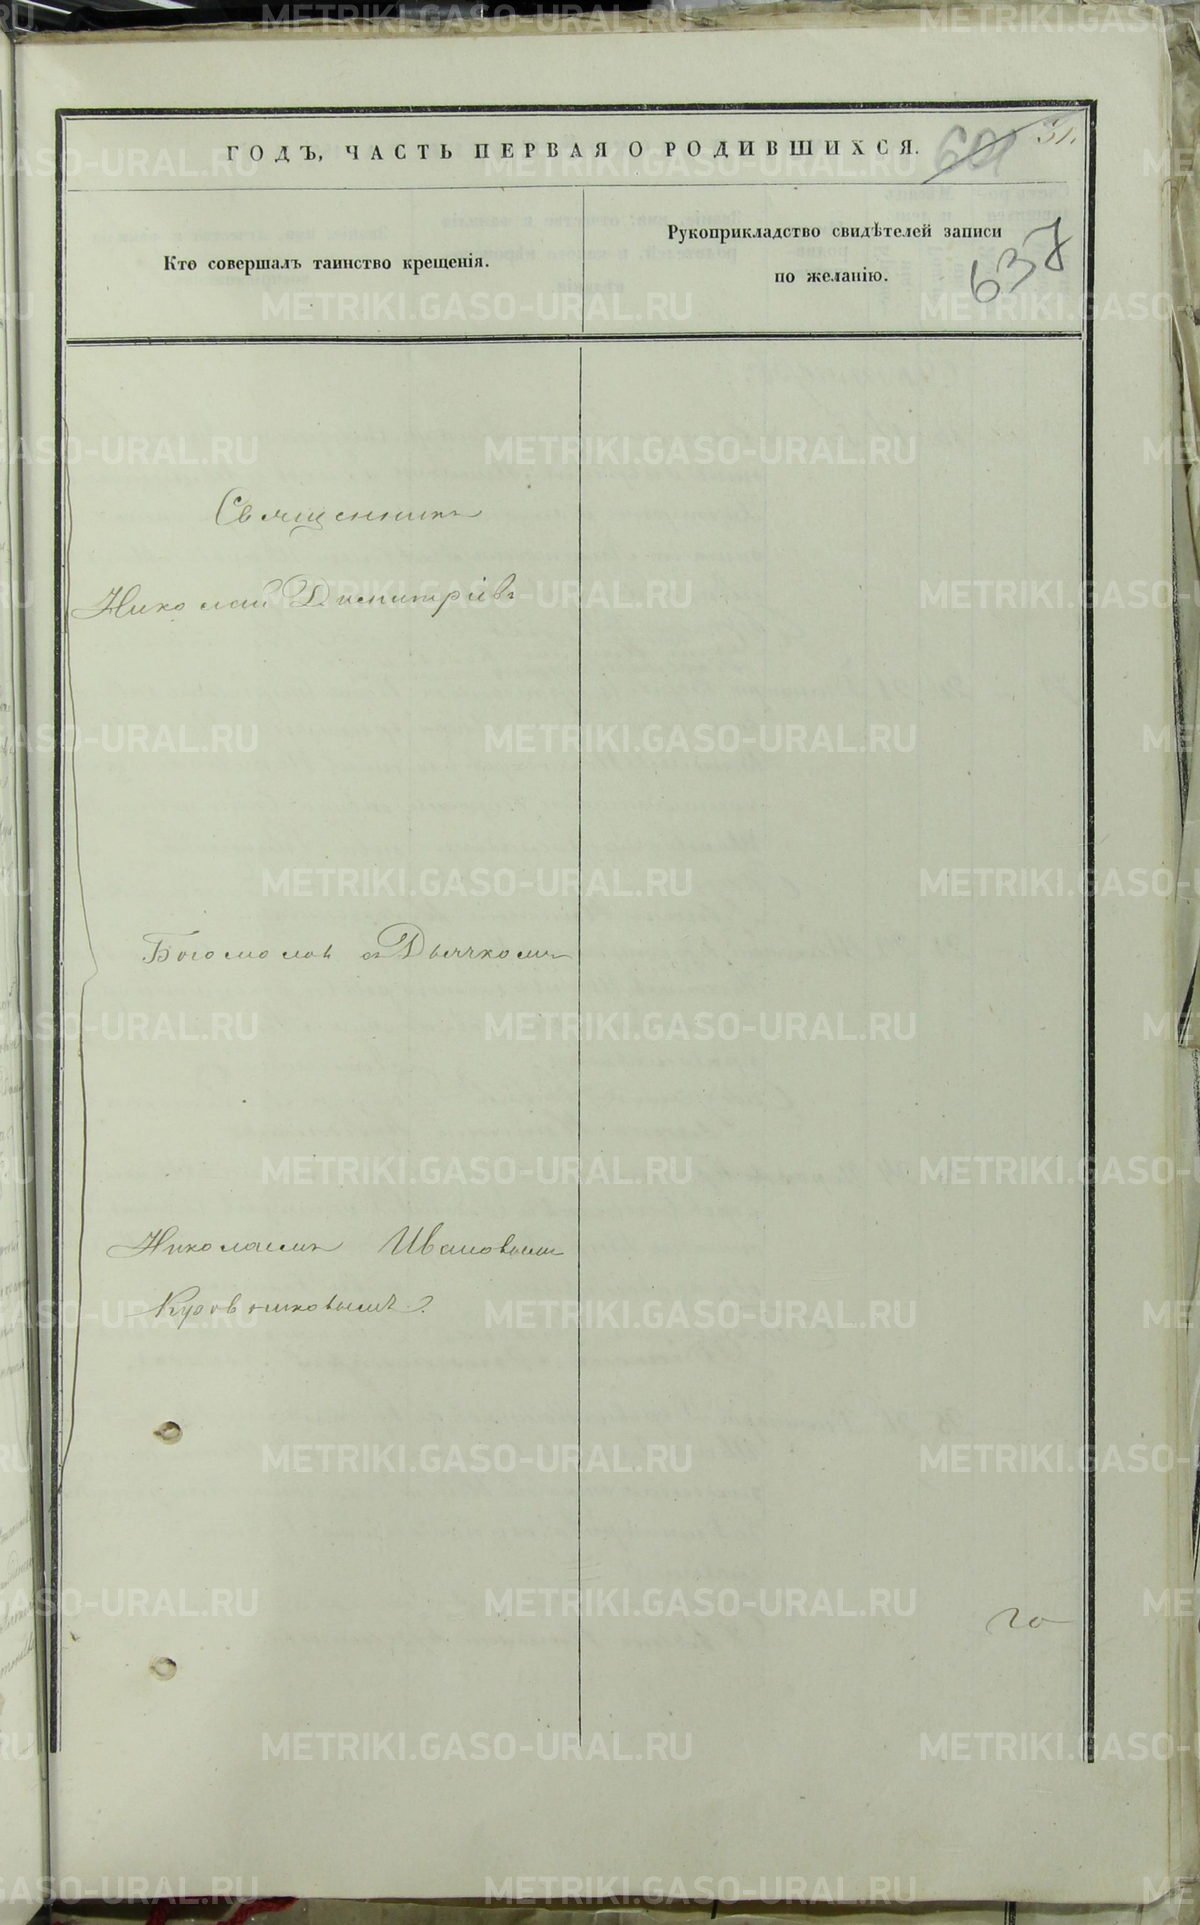 ГОДЪ, ЧАСТЬ ПЕРВАЯ О РОДИВШИХСЯ.
31.
Кто совершалъ таинство крещенія.
Рукоприкладство свидѣтелей записи
по желанію.
637
Священникъ
Николай Димитріевъ
Богомоловъ съ Дьячкомъ
Николаемъ Ивановымъ
METRIKI.GASO-URAL.RU